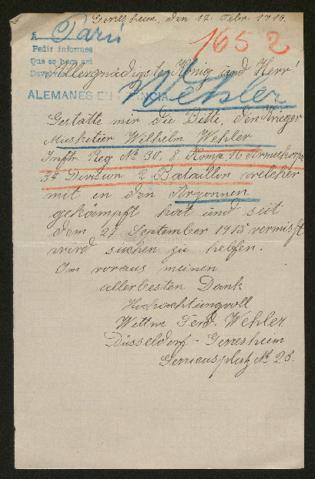 Gerresheim, den 12. Febr. 1916.
A Paris
1652
Pedir informes
Que se
Allergnädigster König und Herr!
ALEMANES EN
Wehler
Gestatte mir die Bitte, den Krieger
Musketier Wilhelm Wehler
Inftr Reg No 30. 8. Komp. 16 Armeekorps
35 Division 2 Bataillon welcher
mit in den Argonnen
gekämpft hat und seit
dem 21. September 1915 vermißt
wird suchen zu helfen.
Im voraus meinen
allerbesten Dank
Hochachtungvoll
Wittwe Ferd. Wehler
Düsseldorf-Gerresheim
platz No 25